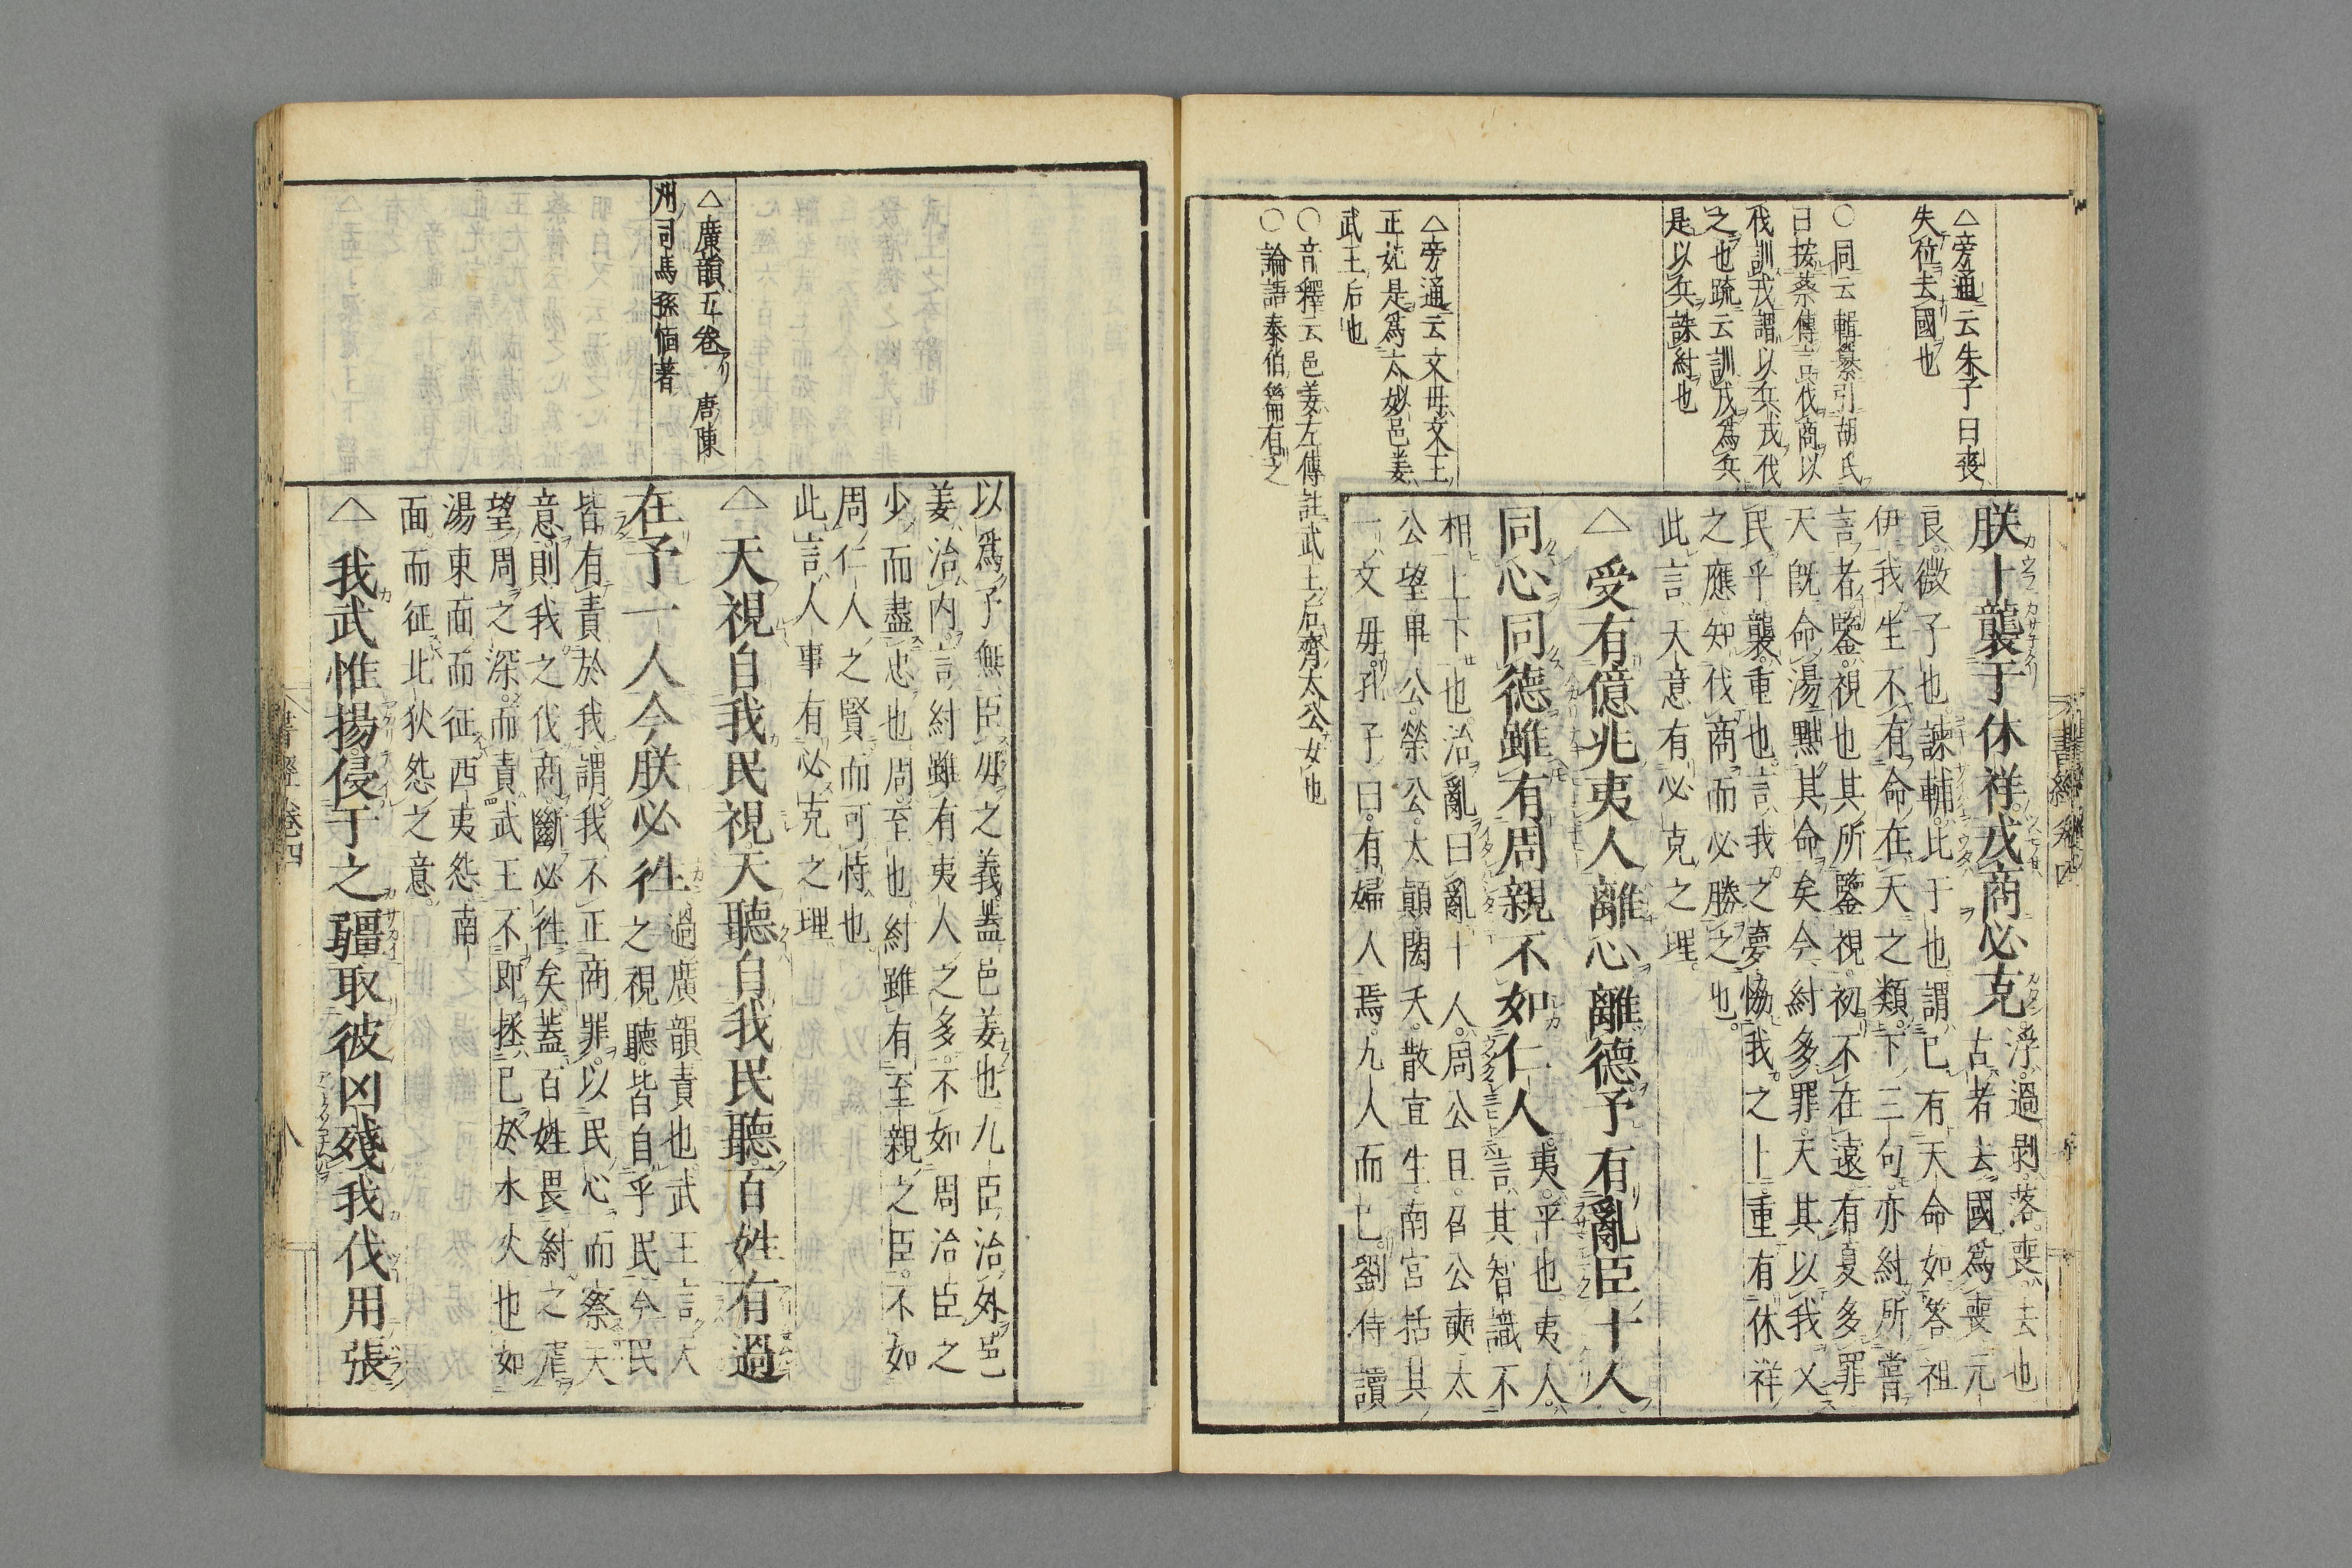 △旁通云朱子曰喪
失位去國也
○同云輯纂引胡氏
曰按蔡傳言伐商以
伐訓戎謂以兵戎伐
之也疏云訓戎爲兵
是以兵誅紂也
△旁通云文母文王
正妃是爲太姒邑姜
武王后也
○音釋云邑姜左傳註武王后齊太公女也
○論語泰伯篇有之
朕卜襲于休祥戎商必克
浮過剥落喪去也
古者去國爲喪元
良微子也諫輔比于也謂已有天命如答祖
伊我生不有命在天之類下三句亦紂所嘗
言者鑒視也其所鑒視初不在遠有夏多罪
天旣命湯黜其命矣今紂多罪天其以我乂
民乎襲重也言我之夢恊我之卜重有休祥
之應知伐商而必勝之也
此言天意有必克之理
△受有億兆夷人離心離德予有亂臣十人
同心同德雖有周親不如仁人
夷平也夷人
言其智識不
相上下也治亂曰亂十人周公旦召公奭太
公望畢公榮公太顛閎夭散宜生南宮括其
一文母孔子曰有婦人焉九人而已劉侍讀
書經卷四
△廣韻五卷 唐陳
州司馬孫愐著
以爲子無臣母之義蓋邑姜也九臣治外邑
姜治内言紂雖有夷人之多不如周治臣之
少而盡忠也周至也紂雖有至親之臣不如
周仁人之賢而可恃也
此言人事有必克之理
△天視自我民視天聽自我民聽百姓有過
在予一人今朕必徃
過廣韻責也武王言天
之視聽皆自乎民今民
皆有責於我謂我不正商罪以民心而察天
意則我之伐商斷必徃矣蓋百姓畏紂之虐
望周之深而責武王不即拯已於水火也如
湯東面而征西夷怨南
面而征北狄怨之意
△我武惟揚侵于之疆取彼凶殘我伐用張
書經卷四
八